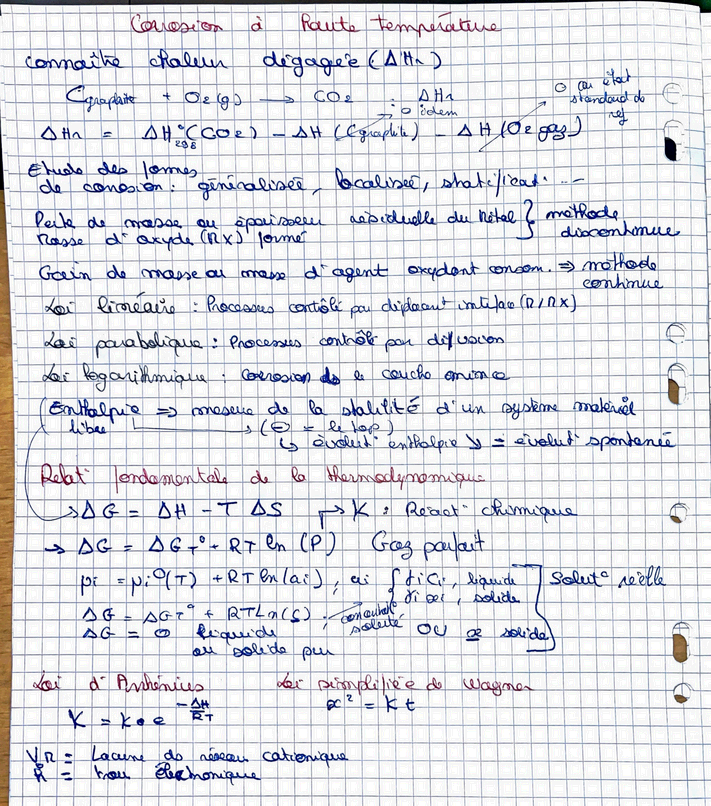 Corrosion à haute température
connaître chaleur dégagée (ΔHr)
C graphite + O2(g) → CO2 : ΔHr
→ 0 idem
0 car état standard de ref
ΔHr = ΔH°298 (CO2) - ΔH (C graphite) - ΔH (O2 gaz)
Etude des formes
de corosion : généralisée, localisée, stratificat° ...
Perte de masse ou épaisseur résiduelle du Métal } méthode
Masse d'oxyde (MX) formé } discontinue
Gain de masse ou masse d'agent oxydant consom. ⇒ méthode continue
Loi linéaire : Processus contrôlé par déplacent interface (M/MX)
Loi parabolique : Processus contrôlé par difusion
Loi logarithmique : corrosion de le couche mince
(Enthalpie ⇒ mesure de la stabilité d'un système matériel
libre → (⊖ = le top)
↳ évolut° enthalpie ↘ = évolut° spontanée
Relat° fondamentale de la thermodynamique
→ ΔG = ΔH - T ΔS → K : React° chimique
→ ΔG = ΔG T° + RT ln (P) Gaz parfait
μi = μi°(T) + RT ln(ai), ai { γi Ci, liquide
γi xi, solide ] Solut° réelle
ΔG = ΔG T° + RT Ln(S) ; concentrat° soluté OU x solide
ΔG = 0 liquide
ou solide pur
Loi d'Arrhénius Loi simplifiée de Wagner
K = K0 e -ΔH/RT x² = K t
VM = Lacune de réseau cationique
h = trou électronique